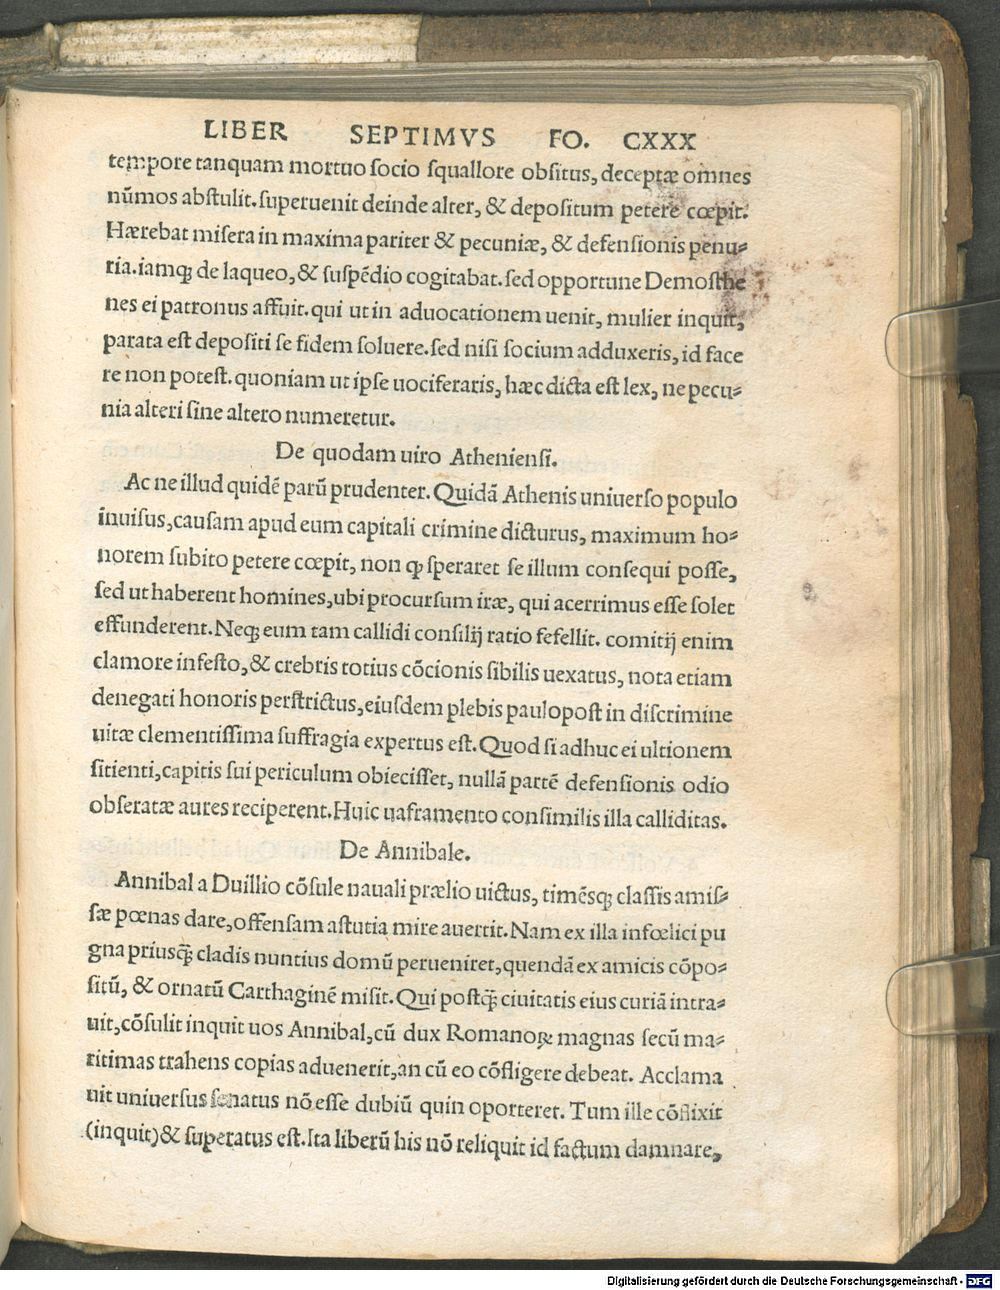 LIBER SEPTIMVS FO. CXXX
tempore tanquam mortuo socio squallore obsitus, deceptæ omnes
nũmos abstulit. superuenit deinde alter, & depositum petere cœpit.
Hærebat misera in maxima pariter & pecuniæ, & defensionis penu-
ria. iamqȝ de laqueo, & suspẽdio cogitabat. sed opportune Demosthe
nes ei patronus affuit. qui ut in aduocationem uenit, mulier inquit,
parata est depositi se fidem soluere. sed nisi socium adduxeris, id face
re non potest. quoniam ut ipse uociferaris, hæc dicta est lex, ne pecu-
nia alteri sine altero numeretur.
De quodam uiro Atheniensi.
Ac ne illud quidẽ parũ prudenter. Quidã Athenis uniuerso populo
inuisus, causam apud eum capitali crimine dicturus, maximum ho-
norem subito petere cœpit, non ꝙ speraret se illum consequi posse,
sed ut haberent homines, ubi procursum iræ, qui acerrimus esse solet
effunderent. Neqȝ eum tam callidi consilij ratio fefellit. comitij enim
clamore infesto, & crebris totius cõcionis sibilis uexatus, nota etiam
denegati honoris perstrictus, eiusdem plebis paulopost in discrimine
uitæ clementissima suffragia expertus est. Quod si adhuc ei ultionem
sitienti, capitis sui periculum obiecisset, nullã partẽ defensionis odio
obseratæ aures reciperent. Huic uaframento consimilis illa calliditas.
De Annibale.
Annibal a Duillio cõsule nauali prælio uictus, timẽsqȝ classis amis-
sæ pœnas dare, offensam astutia mire auertit. Nam ex illa infœlici pu
gna priusq̃ cladis nuntius domũ perueniret, quendã ex amicis cõpo-
sitũ, & ornatũ Carthaginẽ misit. Qui postq̃ ciuitatis eius curiã intra-
uit, cõsulit inquit uos Annibal, cũ dux Romanoꝝ magnas secũ ma-
ritimas trahens copias aduenerit, an cũ eo cõfligere debeat. Acclama
uit uniuersus senatus nõ esse dubiũ quin oporteret. Tum ille cõflixit
(inquit) & superatus est. Ita liberũ his nõ reliquit id factum damnare,
Digitalisierung gefördert durch die Deutsche Forschungsgemeinschaft - DFG